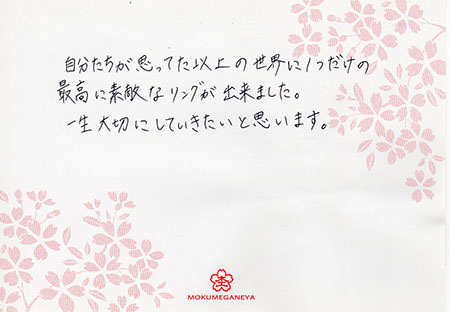 自分たちが思ってた以上の世界に1つだけの
最高に素敵なリングが出来ました。
一生大切にしていきたいと思います。
MOKUMEGANEYA